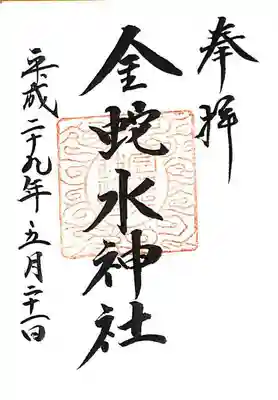 奉拝
金蛇水神社
平成二十九年五月二十一日